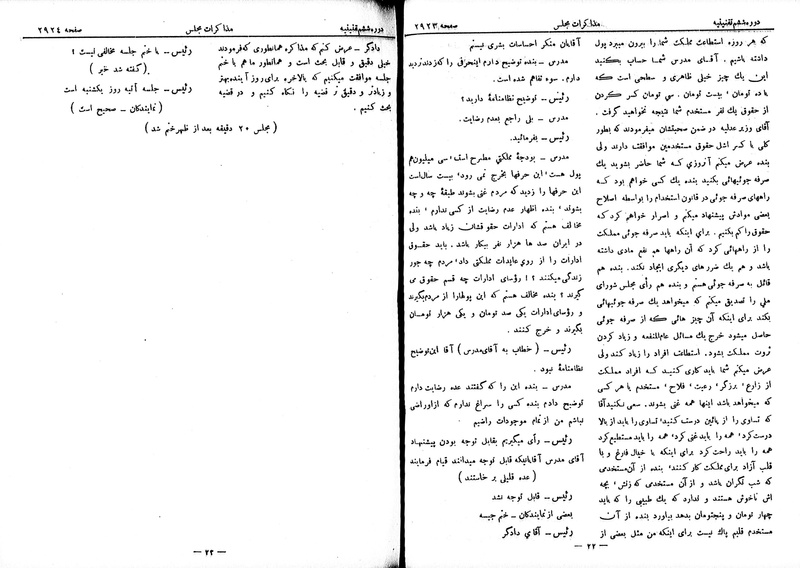 دوره ششم تقنینیه
مذاکرات مجلس
صفحه ۲۹۲۳
که هر روزه استطاعت مملکت شما را بیرون میبرد پول
داشته باشیم. آقای مدرس شما حساب بکنید
این یک چیز خیلی ظاهری و سطحی است که
یا ده تومان، بیست تومان، سی تومان کسر کردن
از حقوق یک نفر مستخدم شما نتیجه نخواهید گرفت.
آقای وزیر عدلیه در ضمن صحبتشان میفرمودند که بطور
کلی با کسر اشل حقوق مستخدمین موافقت دارند ولی
بنده عرض میکنم آنروزی که شما حاضر بشوید یک
صرفه جوئیهائی بکنید بنده یک کسی خواهم بود که
راههای صرفه جوئی در قانون استخدام را بواسطه اصلاح
بعضی موادش پیشنهاد میکنم و اصرار خواهم کرد که
حقوق را کم بکنیم. برای اینکه باید صرفه جوئی مملکت
را از راههائی کرد که آن راهها هم نفع مادی داشته
باشد و هم یک ضررهای دیگری ایجاد نکند. بنده هم
قائل به صرفه جوئی هستم و بنده هم رأی مجلس شورای
ملی را تصدیق میکنم که میخواهد یک صرفه جوئیهائی
بکند برای اینکه آن چیز هائی که از صرفه جوئی
حاصل میشود خرج یک مسائل عام‌المنفعه و زیاد کردن
ثروت مملکت بشود. استطاعت افراد را زیاد کند ولی
عرض میکنم شما باید کاری کنید که افراد مملکت
از زارع، برزگر، رعیت، فلاح، مستخدم یا هر کسی
که میخواهد باشد اینها همه غنی بشوند. سعی نکنید آقا
که تساوی را از پائین درست کنید، تساوی را باید از بالا
درست کرد، همه را باید غنی کرد، همه را باید مستطیع کرد
همه را باید راحت کرد برای اینکه با خیال فارغ و با
قلب آزاد برای مملکت کار کنند، بنده از آن مستخدمی
که شب نگران باشد و از آن مستخدمی که زنش، بچه
اش ناخوش هستند و ندارد که یک طبیبی را که باید
چهار تومان و پنجتومان بدهد بیاورد بنده از آن
مستخدم قلبم پاک نیست برای اینکه من مثل بعضی از
آقایان منکر احساسات بشری نیستم
مدرس – بنده توضیح دارم اینحرفی را که زدند تردید
دارم. سوء تفاهم شده است.
رئیس – توضیح نظامنامهٔ دارید؟
مدرس – بلی راجع بعدم رضایت.
رئیس – بفرمائید.
مدرس – بودجهٔ مملکتی مطرح است، سی میلیون هم
پول هست، این حرفها بخرج نمی رود، بیست سال است
این حرفها را زدید که مردم غنی بشوند طبقهٔ چه و چه
بشوند، بنده اظهار عدم رضایت از کسی ندارم، بنده
مخالف هستم که ادارات حقوقشان زیاد باشد ولی
در ایران صد ها هزار نفر بیکار باشد. باید حقوق
ادارات را از روی عایدات مملکتی داد، مردم چه جور
زندگی میکنند؟! رؤسای ادارات چه قسم حقوق می
گیرند؟ بنده مخالف هستم که این پولها را از مردم بگیرند
و رؤسای ادارات یکی صد تومان و یکی هزار تومان
بگیرند و خرج کنند.
رئیس – (خطاب به آقای مدرس) آقا این توضیح
نظامنامهٔ نبود.
مدرس – بنده این را که گفتند عده رضایت دارم
توضیح دادم بنده کسی را سراغ ندارم که از او راضی
نباشم من از تمام موجودات راضیم
رئیس – رأی میگیریم بقابل توجه بودن پیشنهاد
آقای مدرس آقایانیکه قابل توجه میدانند قیام فرمایند
(عده قلیلی بر خاستند)
رئیس – قابل توجه نشد
بعضی از نمایندگان – ختم جلسه
رئیس – آقای دادگر
– ۲۲ –
دوره ششم تقنینیه
مذاکرات مجلس
صفحه ۲۹۲۴
دادگر – عرض کنم که مذاکره همانطوری که فرمودند
خیلی دقیق و قابل بحث است و همانطور ما هم با ختم
جلسه موافقت میکنیم که بالاخره برای روز آینده بهتر
و زیادتر و دقیق تر قضیه را نگاه کنیم و در قضیه
بحث کنیم.
رئیس – با ختم جلسه مخالفی نیست؟
(گفته شد خیر)
رئیس – جلسه آتیه روز یکشنبه است
(نمایندگان – صحیح است)
(مجلس ۲۰ دقیقه بعد از ظهر ختم شد)
– ۲۳ –